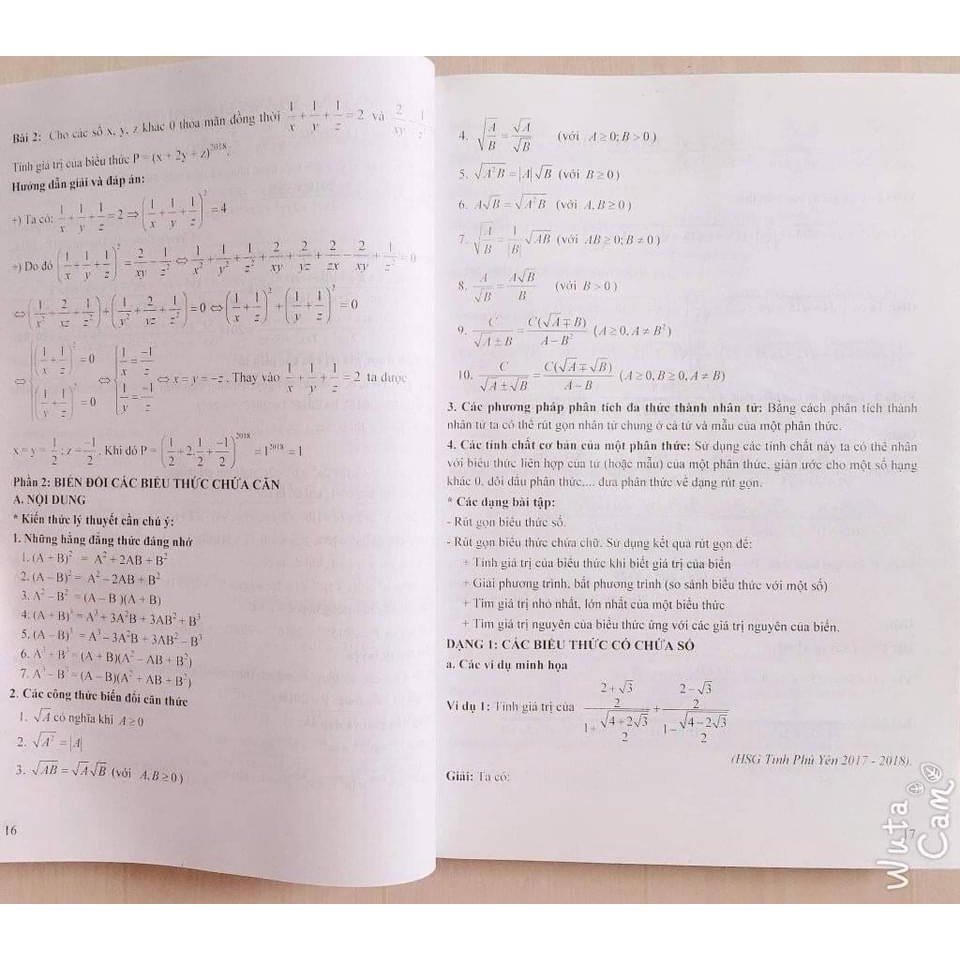 Bài 2: Cho các số x, y, z khác 0 thỏa mãn đồng thời 1/x + 1/y + 1/z = 2 và 2/xy - 1/z² 
Tính giá trị của biểu thức P = (x + 2y + z)^2018.
Hướng dẫn giải và đáp án:
+) Ta có: 1/x + 1/y + 1/z = 2 ⇒ (1/x + 1/y + 1/z)² = 4
+) Do đó (1/x + 1/y + 1/z)² = 2/xy - 1/z² ⇔ 1/x² + 1/y² + 1/z² + 2/xy + 2/yz + 2/zx - 2/xy + 1/z² = 0
⇔ (1/x² + 2/xz + 1/z²) + (1/y² + 2/yz + 1/z²) = 0 ⇔ (1/x + 1/z)² + (1/y + 1/z)² = 0
⇔ { (1/x + 1/z)² = 0 ; (1/y + 1/z)² = 0 ⇔ { 1/x = -1/z ; 1/y = -1/z ⇔ x = y = -z. Thay vào 1/x + 1/y + 1/z = 2 ta được
x = y = 1/2; z = -1/2. Khi đó P = (1/2 + 2.1/2 + -1/2)^2018 = 1^2018 = 1
Phần 2: BIẾN ĐỔI CÁC BIỂU THỨC CHỨA CĂN
A. NỘI DUNG
* Kiến thức lý thuyết cần chú ý:
1. Những hằng đẳng thức đáng nhớ
1. (A + B)² = A² + 2AB + B²
2. (A – B)² = A² – 2AB + B²
3. A² – B² = (A – B)(A + B)
4. (A + B)³ = A³ + 3A²B + 3AB² + B³
5. (A – B)³ = A³ – 3A²B + 3AB² – B³
6. A³ + B³ = (A + B)(A² – AB + B²)
7. A³ – B³ = (A – B)(A² + AB + B²)
2. Các công thức biến đổi căn thức
1. √A có nghĩa khi A ≥ 0
2. √(A²) = |A|
3. √(AB) = √A√B (với A, B ≥ 0)
16
4. √(A/B) = √A/√B (với A ≥ 0; B > 0)
5. √(A²B) = |A|√B (với B ≥ 0)
6. A√B = √(A²B) (với A, B ≥ 0)
7. √(A/B) = 1/|B| √(AB) (với AB ≥ 0; B ≠ 0)
8. A/√B = A√B/B (với B > 0)
9. C/(√A ± B) = C(√A ∓ B)/(A – B²) (A ≥ 0, A ≠ B²)
10. C/(√A ± √B) = C(√A ∓ √B)/(A – B) (A ≥ 0, B ≥ 0, A ≠ B)
3. Các phương pháp phân tích đa thức thành nhân tử: Bằng cách phân tích thành
nhân tử ta có thể rút gọn nhân tử chung ở cả tử và mẫu của một phân thức.
4. Các tính chất cơ bản của một phân thức: Sử dụng các tính chất này ta có thể nhân
với biểu thức liên hợp của tử (hoặc mẫu) của một phân thức, giản ước cho một số hạng
khác 0, đổi dấu phân thức,... đưa phân thức về dạng rút gọn.
* Các dạng bài tập:
- Rút gọn biểu thức số.
- Rút gọn biểu thức chứa chữ. Sử dụng kết quả rút gọn để:
+ Tính giá trị của biểu thức khi biết giá trị của biến
+ Giải phương trình, bất phương trình (so sánh biểu thức với một số)
+ Tìm giá trị nhỏ nhất, lớn nhất của một biểu thức
+ Tìm giá trị nguyên của biểu thức ứng với các giá trị nguyên của biến.
DẠNG 1: CÁC BIỂU THỨC CÓ CHỨA SỐ
a. Các ví dụ minh họa
Ví dụ 1: Tính giá trị của ((2+√3)/2)/(1+√(4+2√3)/2) + ((2-√3)/2)/(1-√(4-2√3)/2)
(HSG Tỉnh Phú Yên 2017 - 2018).
Giải: Ta có:
17
Wuta Cam